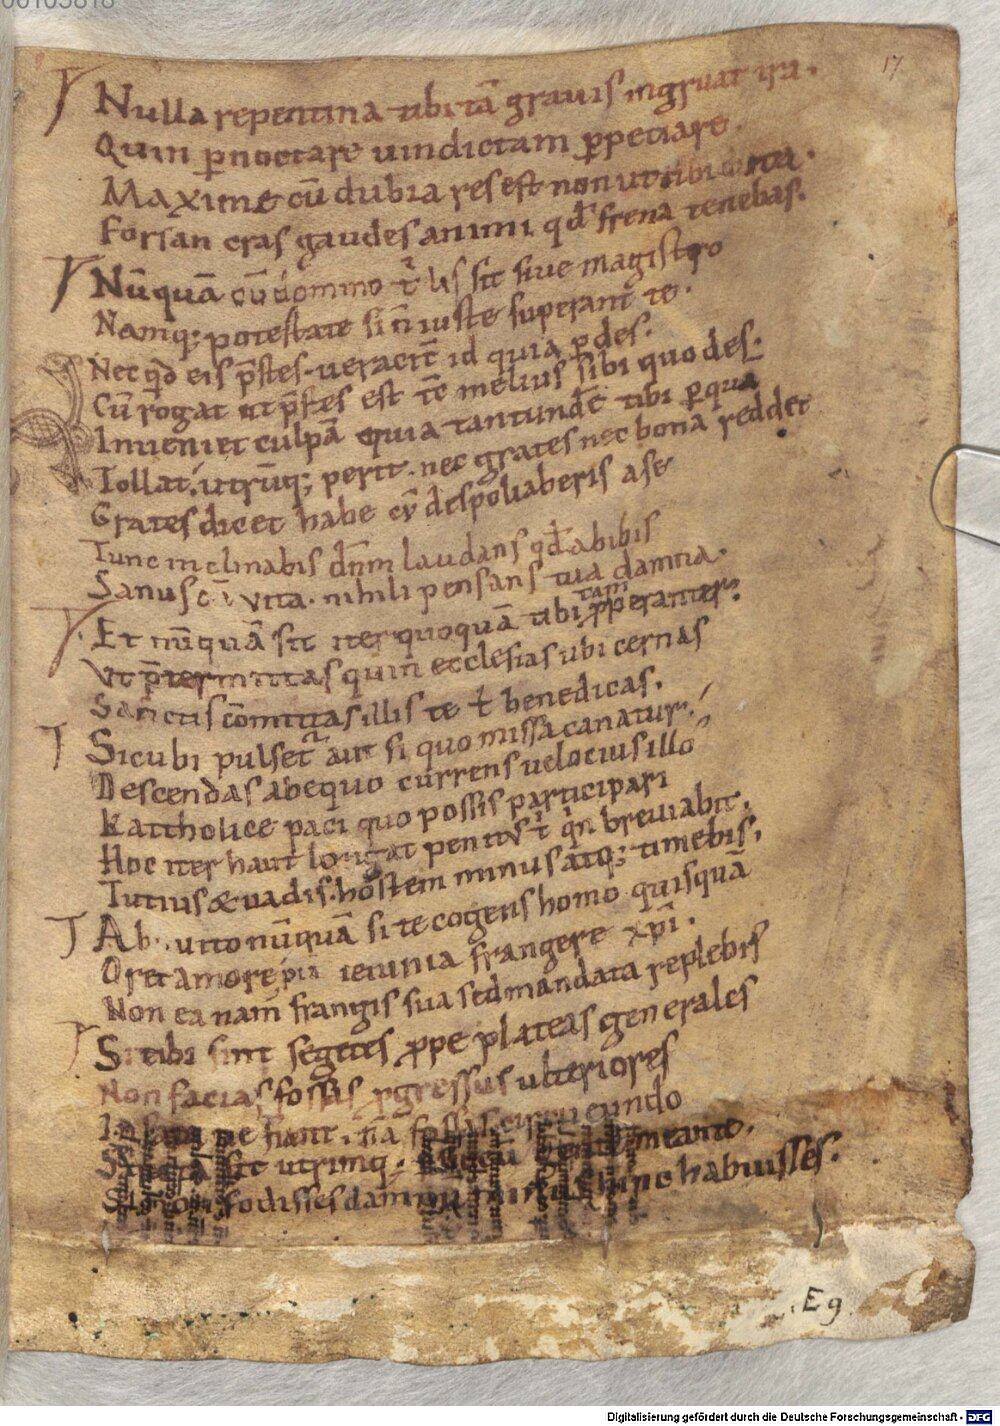 00103818
17
Nulla repentina tibi tā grauis ingruat ira.
Quin pnoctare uindictam ppetiare
Maxime cū dubia res est non ut tibi dicta.
Forsan cras gaudes animi qđ frena tenebas.
Nūquā cū domno t̄ lis sit siue magistro
Namq; potestate si n̄ iuste superant te.
Nec qđ eis p̄stes. ueracit̄ id quia pdes.
Cū rogat ut p̄stes est tē melius sibi quo des.
Inueniet culpā quia tantundē tibi perqua
Tollat. utrūq; perit. nec grates nec bona reddet
Grates dicet habe cū despoliaberis a se
Tunc inclinabis dn̄m laudans qđ abibis
Sanus cū uita. nihili pensans tua damna.
Et nūquā sit iter quoquā tibi tam pperanter.
Vt p̄termittas quin ecclesias ubi cernas
Sanctis cōmittas illis te t̄ benedicas.
Sicubi pulset̄ aut si quo missa canatur.
Descendas ab equo currens uelocius illo
Kattholice paci quo possis participari
Hoc iter haut longat penitus t̄ qn̄ breuiabit.
Tutius & uadis. hostem minus atq; timebis.
Abnuito nūquā si te cogens homo quisquā
Oret amore pia ieiunia frangere xpi.
Non ea nam frangis sua sed mandata replebis
Si tibi sint segetes ppe plateas generales
Non facias fossas pgressus ulteriores
ne fiant nā fossas circueundo
sit utrimq; meando.
Si non fodisses damnū minus hinc habuisses.
E 9.
Digitalisierung gefördert durch die Deutsche Forschungsgemeinschaft - DFG